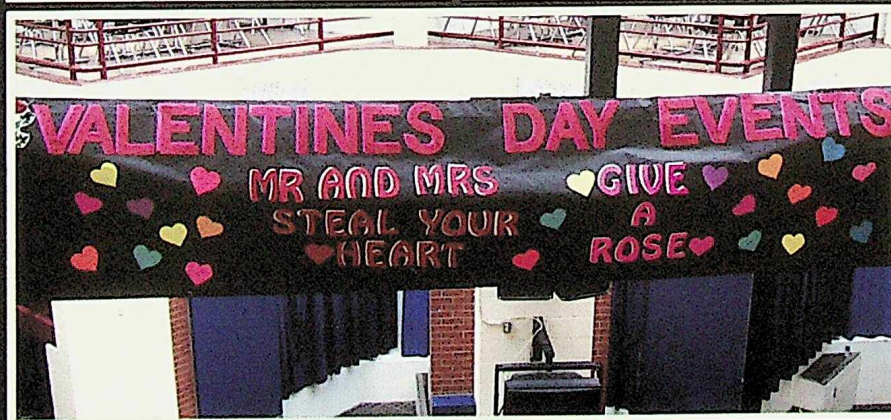 VALENTINES DAY EVENTS
MR AND MRS
STEAL YOUR
HEART
GIVE
A
ROSE